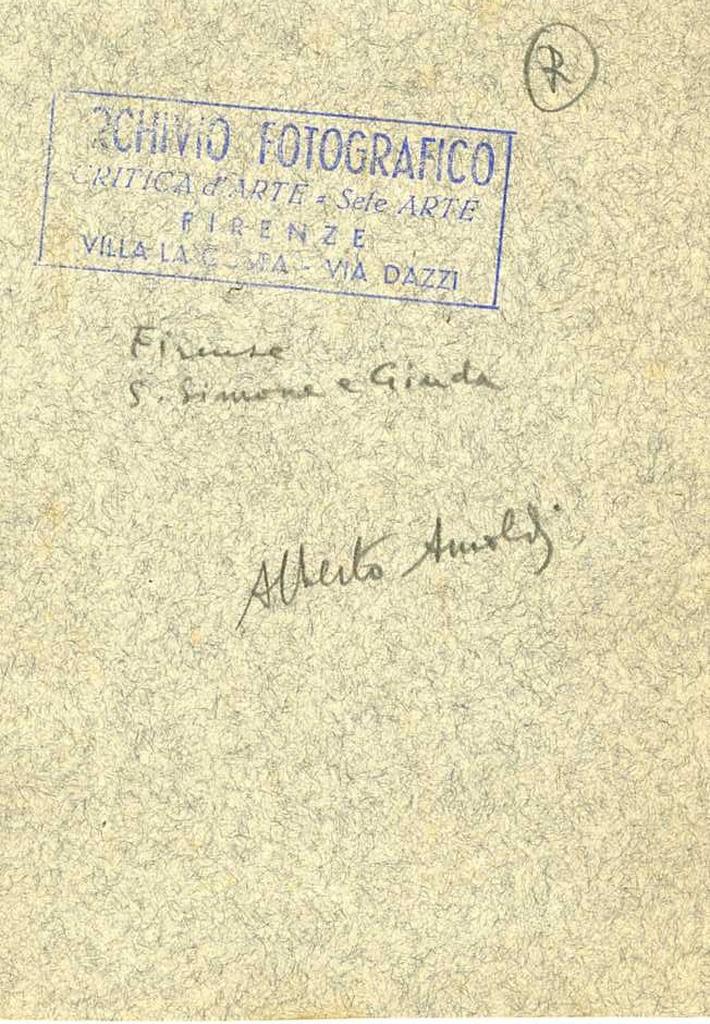 R
ARCHIVIO FOTOGRAFICO
CRITICA d'ARTE - Sele ARTE
FIRENZE
VILLA LA - VIA DAZZI
Firenze
S. Simone e Giuda
Alberto Arnoldi